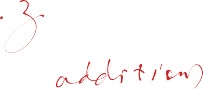 .3.
additions